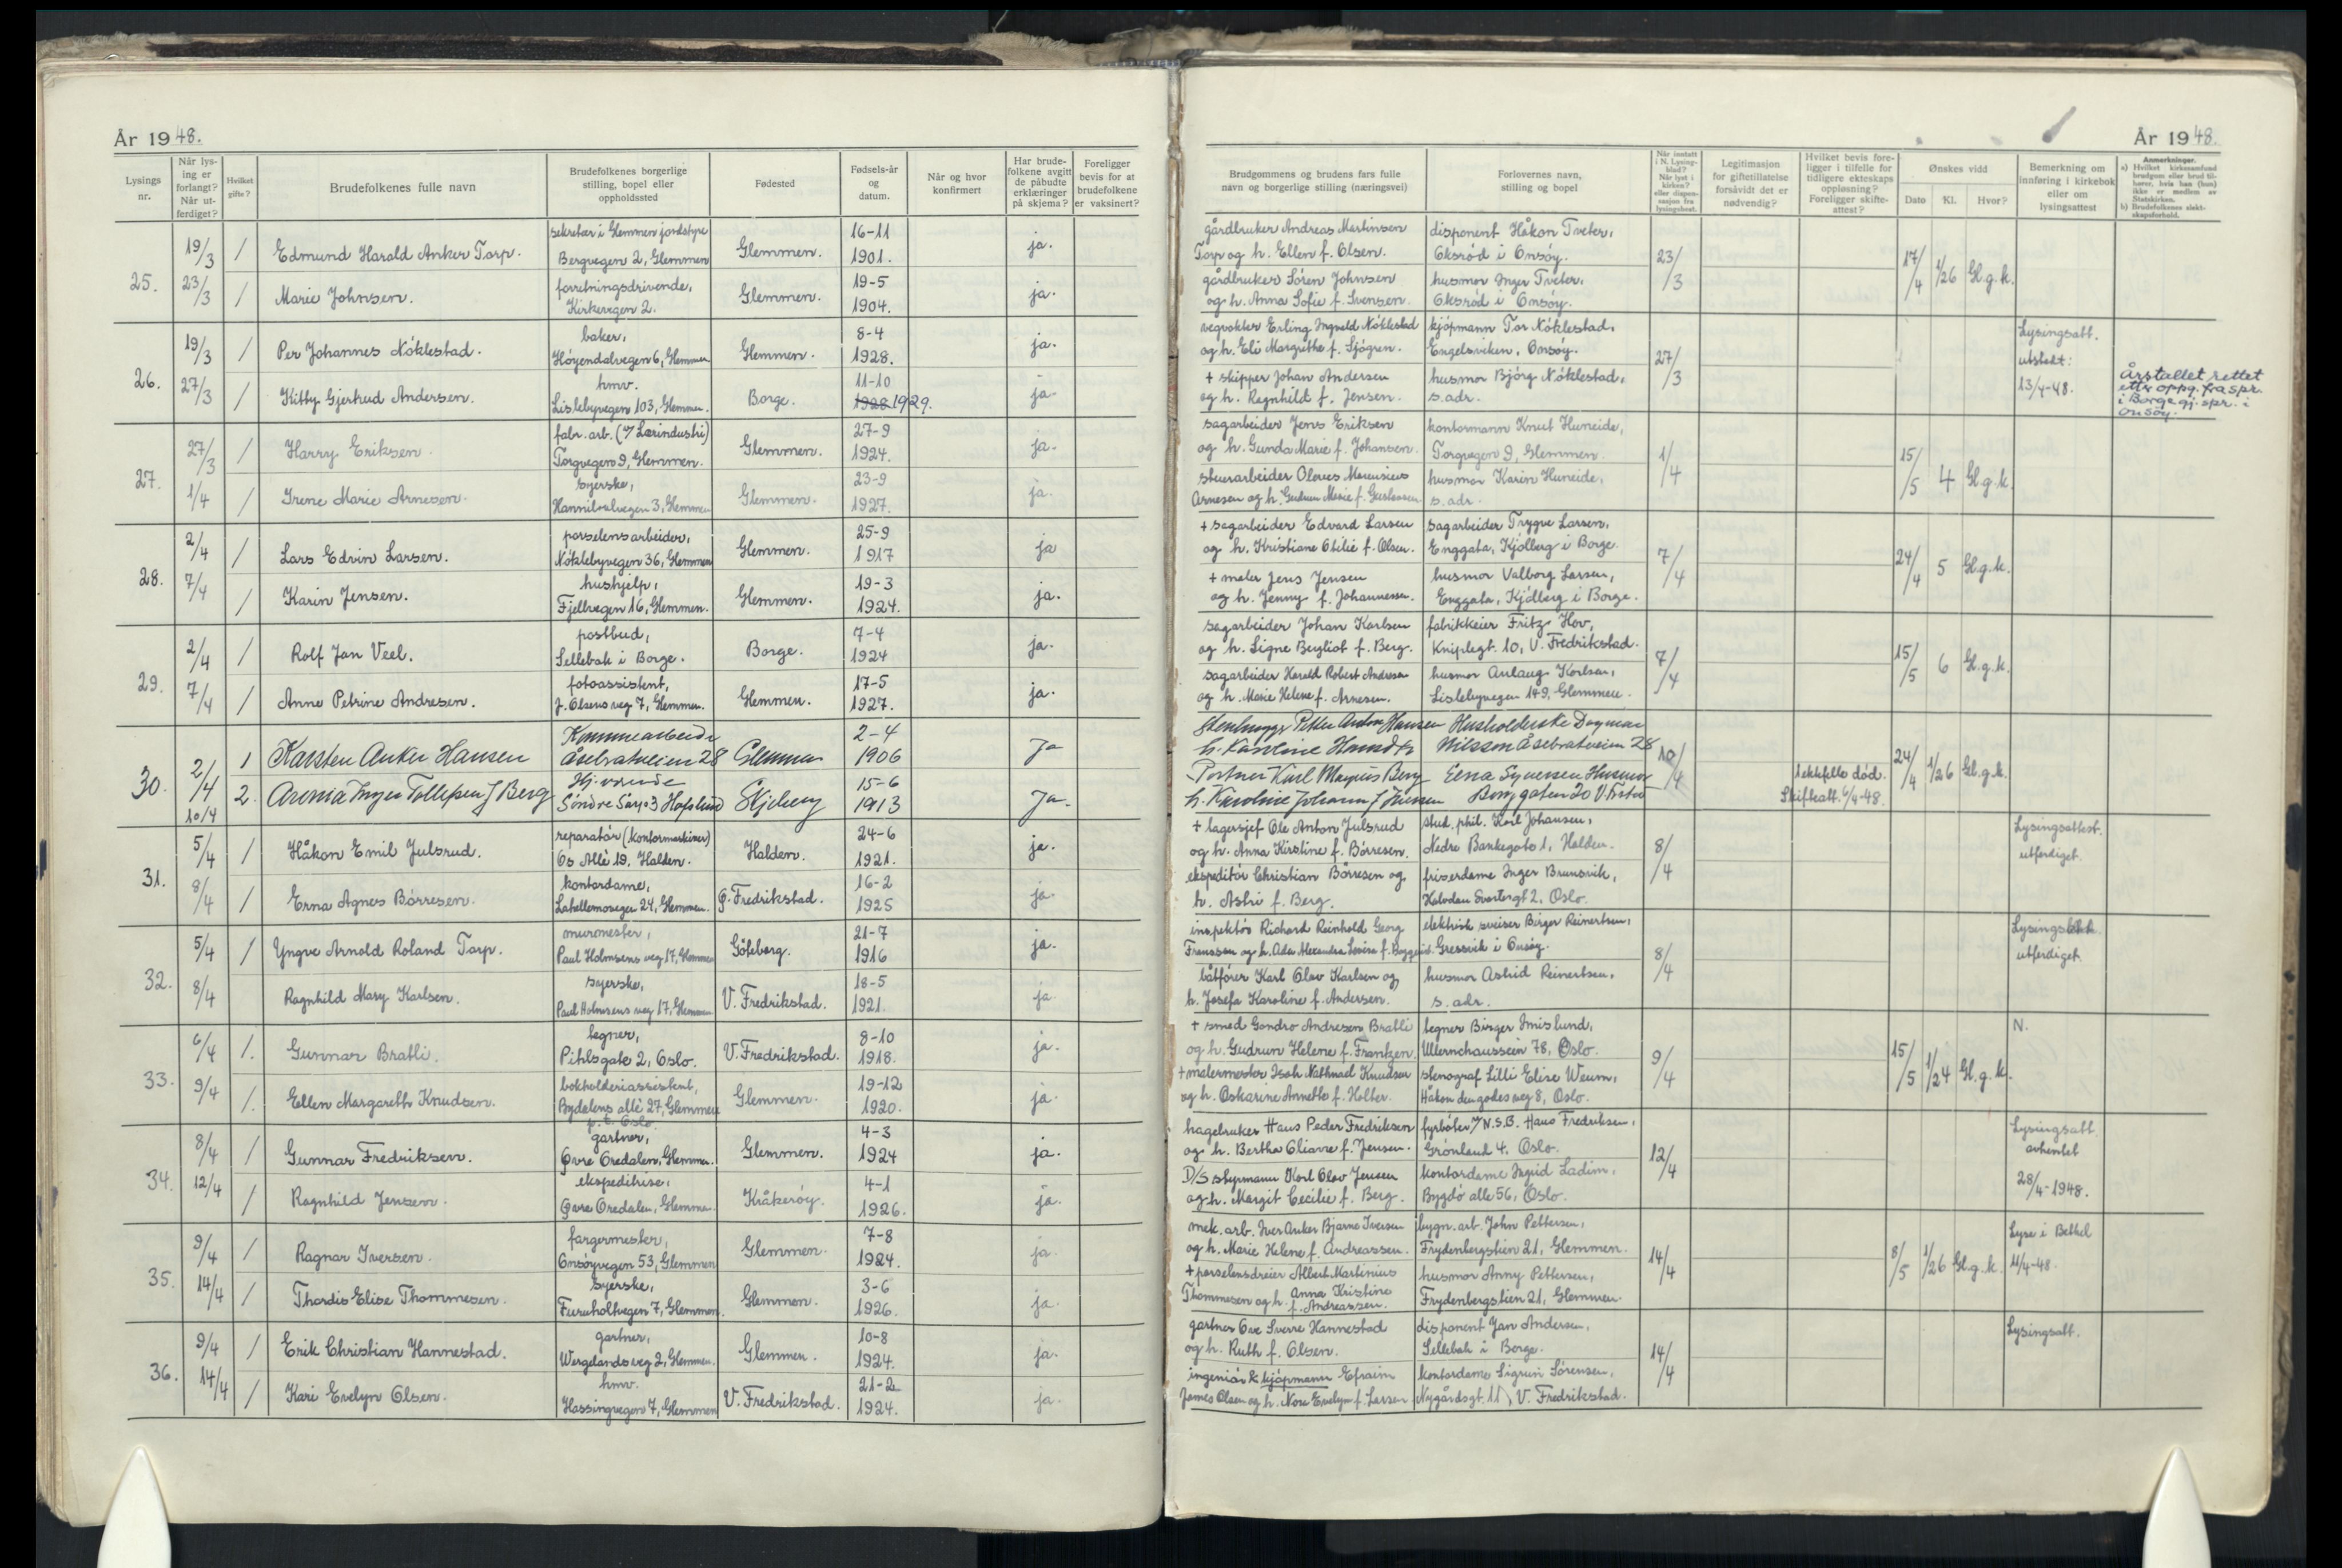 År 1948.
Lysings nr.
Når lysing er forlangt? Når utferdiget?
Hvilket gifte?
Brudefolkenes fulle navn
Brudefolkenes borgerlige stilling, bopel eller oppholdssted
Fødested
Fødsels-år og datum.
Når og hvor konfirmert
Har brudefolkene avgitt de påbudte erklæringer på skjema?
Foreligger bevis for at brudefolkene er vaksinert?
25.
19/3 1 Edmund Harald Anker Torp. sekretær i Glemmen jordstyre Bergvegen 2, Glemmen Glemmen. 16-11 1901. ja.
23/3 1 Marie Johnsen. forretningsdrivende, Kirkevegen 2. Glemmen. 19-5 1904. ja.
26.
19/3 1 Per Johannes Nöklestad. baker, Höyendalvegen 6, Glemmen Glemmen. 8-4 1928. ja.
27/3 1 Kitty Gjertrud Andersen. hmv. Lislebyvegen 103, Glemmen. Borge. 11-10 1928 1929. ja.
27.
27/3 1 Harry Eriksen. fabr. arb. (v/ Lærindustri) Torgvegen 9, Glemmen. Glemmen. 27-9 1924. ja.
1/4 1 Irene Marie Arnesen. syerske, 3, Glemmen Glemmen. 23-9 1927. ja.
28.
2/4 1 Lars Edvin Larsen. porselensarbeider, Nöklebyvegen 36, Glemmen Glemmen. 25-9 1917 ja
7/4 1 Karin Jensen. hushjelp, Fjellvegen 16, Glemmen. Glemmen. 19-3 1924. ja.
29.
2/4 1 Rolf Jan Veel. postbud, Sellebak i Borge. Borge. 7-4 1924 ja.
7/4 1 Anne Petrine Andresen. fotoassistent, J. Olsens veg 7, Glemmen. Glemmen. 17-5 1927. ja.
30.
2/4 1 Karsten Anker Hansen Åsebråtveien 28 Glemmen 2-4 1906 Ja
10/4 2. Inger Tollefsen f Berg Hj. værende Söndre Hafslund Skjeberg 15-6 1913 Ja.
31.
5/4 1 Håkon Emil Julsrud. reparatör (kontormaskiner) Os Allè 19, Halden. Halden. 24-6 1921. ja.
8/4 1 Erna Agnes Börresen. kontordame, Labellemovegen 24, Glemmen. Ø. Fredrikstad. 16-2 1925 ja.
32.
5/4 1 Yngve Arnold Roland Torp. murmester, Paul Holmsens veg 17, Glemmen Göteborg. 21-7 1916 ja.
8/4 Ragnhild Mary Karlsen. syerske, Paul Holmsens veg 17, Glemmen V. Fredrikstad. 18-5 1921. ja
33.
6/4 1. Gunnar Bratli. tegner, Pihlsgate 2, Oslo. V. Fredrikstad. 8-10 1918. ja.
9/4 1. Ellen Margareth Knudsen. bokholderiassistent, Bydalens allè 27, Glemmen p.t. Oslo. Glemmen. 19-12 1920. ja.
34.
8/4 1 Gunnar Fredriksen. gartner, Øvre Oredalen, Glemmen. Glemmen. 4-3 1924 ja.
12/4 1 Ragnhild Jensen. ekspeditrise, Øvre Oredalen, Glemmen. Kråkeröy. 4-1 1926. ja.
35.
9/4 1 Ragnar Iversen. fargermester, Onsöyvegen 53, Glemmen Glemmen. 7-8 1924. ja
14/4 1 Thordis Elise Thommesen. syerske, Furuholtvegen 7, Glemmen. Glemmen. 3-6 1926. ja
36.
9/4 1 Erik Christian Hannestad. gartner, Wergelands veg 2, Glemmen. Glemmen. 10-8 1924. ja.
14/4 1 Kari Evelyn Olsen. hmv. Hassingvegen 7, Glemmen V. Fredrikstad. 21-2 1924. ja.
År 1948.
Brudgommens og brudens fars fulle navn og borgerlige stilling (næringsvei)
Forlovernes navn, stilling og bopel
Når innsatt i N. Lysingsblad? Når lyst i kirken? eller dispensasjon fra lysingsbest.
Legitimasjon for giftetillatelse forsåvidt det er nødvendig?
Hvilket bevis foreligger i tilfelle for tidligere ekteskaps oppløsning? Foreligger skifteattest?
Ønskes vidd
Dato Kl. Hvor?
Bemerkning om innføring i kirkebok eller om lysingsattest
Anmerkninger.
a) Hvilket kirkesamfund brudgom eller brud tilhører, hvis han (hun) ikke er medlem av Statskirken.
b) Brudefolkenes slektskapsforhold.
gårdbruker Andreas Martinsen disponent Håkon Tveter,
Torp og h. Ellen f. Olsen. Oksröd i Onsöy. 23/3 17/4 1/26 Gl.g.k.
gårdbruker Sören Johnsen husmor Inger Tveter,
og h. Anna Sofie f. Svensen. Oksröd i Onsöy.
vegvokter Erling Ingvald Nöklestad kjöpmann Tor Nöklestad, Lysingsatt.
og h. Eli Margrethe f. Sjögren. Engelsviken, Onsöy. 27/3 utstedt:
+ skipper Johan Andersen husmor Björg Nöklestad, 13/4-48. Årstallet rettet
og h. Ragnhild f. Jensen. s. adr. etter oppg. fra spr.
i Borge gj. spr. i
Onsöy.
sagarbeider Jens Eriksen kontormann Knut Huneide,
og h. Gunda Marie f. Johansen. Torgvegen 9, Glemmen. 1/4 15/5 4 Gl.g.k.
stuerarbeider Olaves Marensius husmor Karin Huneide,
Arnesen og h. Gudrun Marie f. s. adr.
+ sagarbeider Edvard Larsen sagarbeider Trygve Larsen,
og h. Kristiane Otilie f. Olsen. Enggata, Kjölberg i Borge. 7/4 24/4 5 Gl.g.k.
+ maler Jens Jensen husmor Valborg Larsen,
og h. Jenny f. Johannessen. Enggata, Kjölberg i Borge.
sagarbeider Johan Karlsen fabrikkeier Fritz Hov,
og h. Signe Bergliot f. Berg. Kniplegt. 10, V. Fredrikstad. 7/4 15/5 6 Gl.g.k.
sagarbeider Harald Robert Andresen husmor Aslaug Karlsen,
og h. Marie Helene f. Arnesen. Lislebyvegen 149, Glemmen.
Stenhugger Petter Anton Hansen Husholderske Dagmar
h. Karoline Nilsson Åsebråtveien 28 10/4 24/4 1/26 Gl.g.k.
Portner Karl Magnus Berg Erna Syversen Husmor 1 ektefelle död.
h. Karoline Johanne f Borggaten 20 V. Fr.stad Skifteatt. 6/4-48.
+ lagersjef Ole Anton Julsrud stud. phil. Karl Johansen, Lysingsattest.
og h. Anna Kirstine f. Börresen. Nedre Bankegate 1, Halden. 8/4 utferdiget.
ekspeditör Christian Börresen og friserdame Inger Brunsvik,
h. Astri f. Berg. Halvdan Svartesgt 2, Oslo.
inspektör Richard Reinhold Georg elektrisk sveiser Birger Reinertsen, Lysingsatt.
Fransson og h. Ada Alexandra Lovise f. Gressvik i Onsöy. 8/4 utferdiget.
båtförer Karl Olav Karlsen og husmor Astrid Reinertsen,
h. Josefa Karoline f. Andersen. s. adr.
+ smed Gondro Andresen Bratli tegner Birger Imislund, N.
og h. Gudrun Helene f. Frantzen. Ullernchausseèn 78, Oslo. 9/4 15/5 1/24 Gl.g.k.
+ malermester Isak Nathnael Knudsen stenograf Lilli Elise Weum,
og h. Oskarine Annette f. Holter. Håkon den godes veg 8, Oslo.
hagebruker Hans Peder Fredriksen fyrböter v/ N.S.B. Hans Fredriksen, Lysingsatt.
og h. Bertha Oliane f. Jensen. Grønland 4, Oslo. 12/4 avhentet
D/S styrmann Karl Olav Jensen kontordame Ingrid Ladim, 28/4-1948.
og h. Margit Cecilie f. Berg. Bygdö alle 56, Oslo.
mek. arb. Iver Anker Bjarne Iversen bygn. arb. John Pettersen, Lyse i Bethel
og h. Marie Helene f. Andreassen. Frydenbergstien 21, Glemmen. 14/4 8/5 1/26 Gl.g.k. 11/4-48.
+ porselensdreier Albert Martinius husmor Anny Pettersen,
Thommesen og h. Anna Kristine f. Andreassen. Frydenbergstien 21, Glemmen.
gartner Ove Sverre Hannestad disponent Jan Andersen, Lysingsatt.
og h. Ruth f. Olsen. Sellebak i Borge. 14/4
ingeniör & kjöpmann Efraim kontordame Sigrun Sörensen,
James Olsen og h. Nora Evelyn f. Larsen Nygårdsgt. 11, V. Fredrikstad.